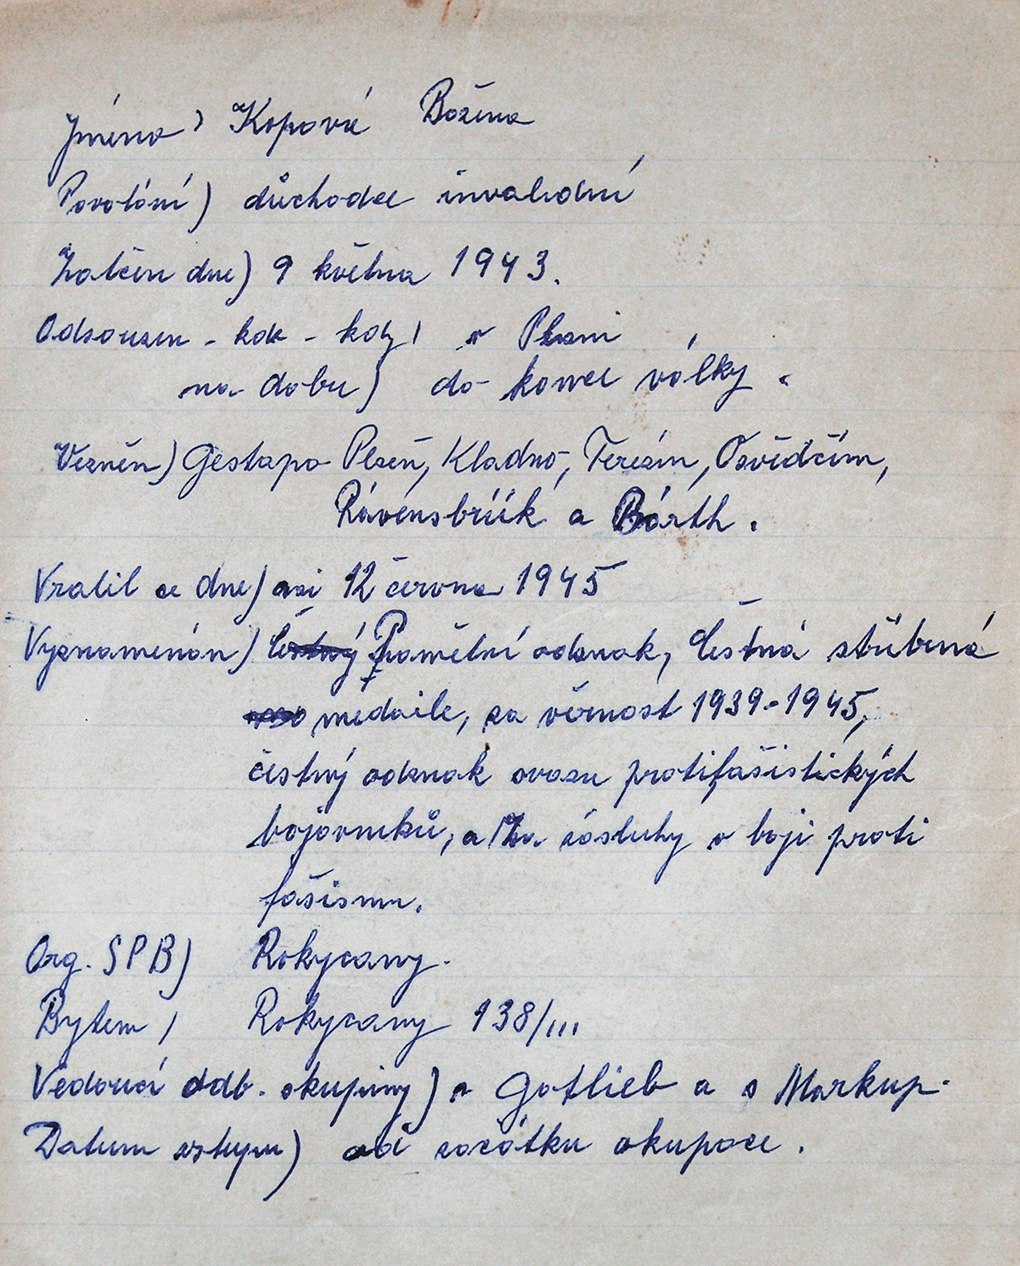 Jméno) Kopová Božena
Povolání) důchodce invalidní
Zatčen dne) 9 května 1943.
Odsouzen - kde - kdy) v Plzni
na dobu) do konec války.
Vězněn) Gestapo Plzeň, Kladno, Terezín, Osvědčím,
Rávensbrük a Bárth.
Vrátil se dne) asi 12 června 1945
Vyznamenán) Pamětní odznak, Čestná stříbrná
medaile, za věrnost 1939-1945,
čestný odznak svazu protifašistických
bojovníků, a Za zásluhy v boji proti
fašismu.
Org. SPB) Rokycany.
Bytem) Rokycany 138/III
Vedoucí odb. skupiny) s Gotlieb a s Markup.
Datum vstupu) od začátku okupace.